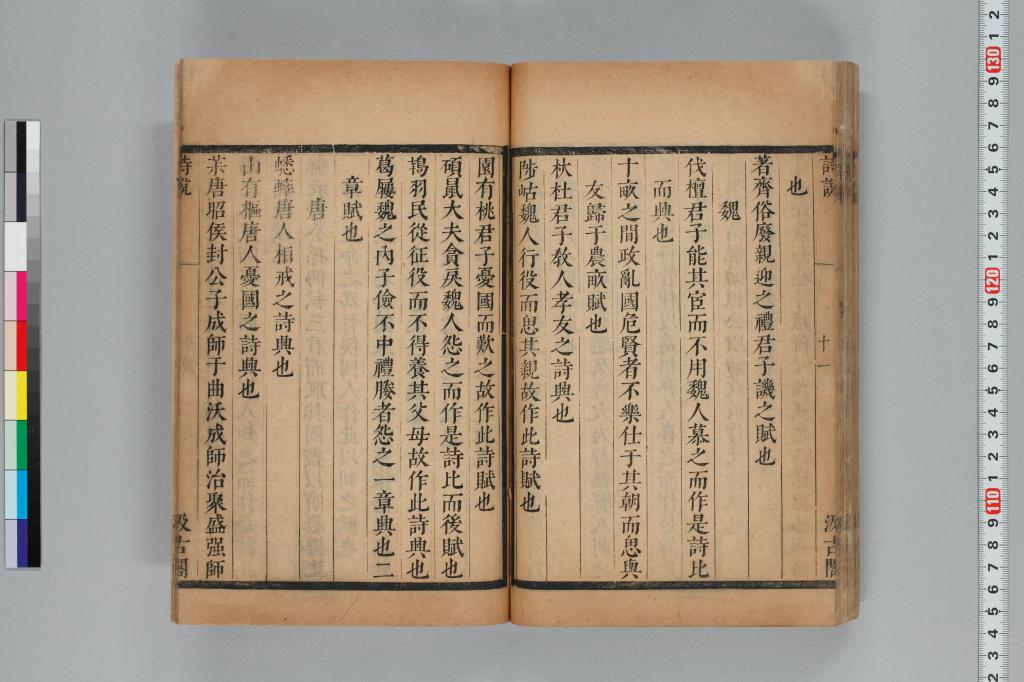 詩說
十一
汲古閣
也
著齊俗廢親迎之禮君子譏之賦也
魏
伐檀君子能其宦而不用魏人慕之而作是詩比
而興也
十畝之間政亂國危賢者不樂仕于其朝而思與
友歸于農畝賦也
杕杜君子教人孝友之詩興也
陟岵魏人行役而思其親故作此詩賦也
園有桃君子憂國而歎之故作此詩賦也
碩鼠大夫貪戾魏人怨之而作是詩比而後賦也
鴇羽民從征役而不得養其父母故作此詩興也
葛屨魏之內子儉不中禮媵者怨之一章興也二
章賦也
唐
蟋蟀唐人相戒之詩興也
山有樞唐人憂國之詩興也
唐昭侯封公子成師于曲沃成師治聚盛强師
詩說
汲古閣
130
120
110